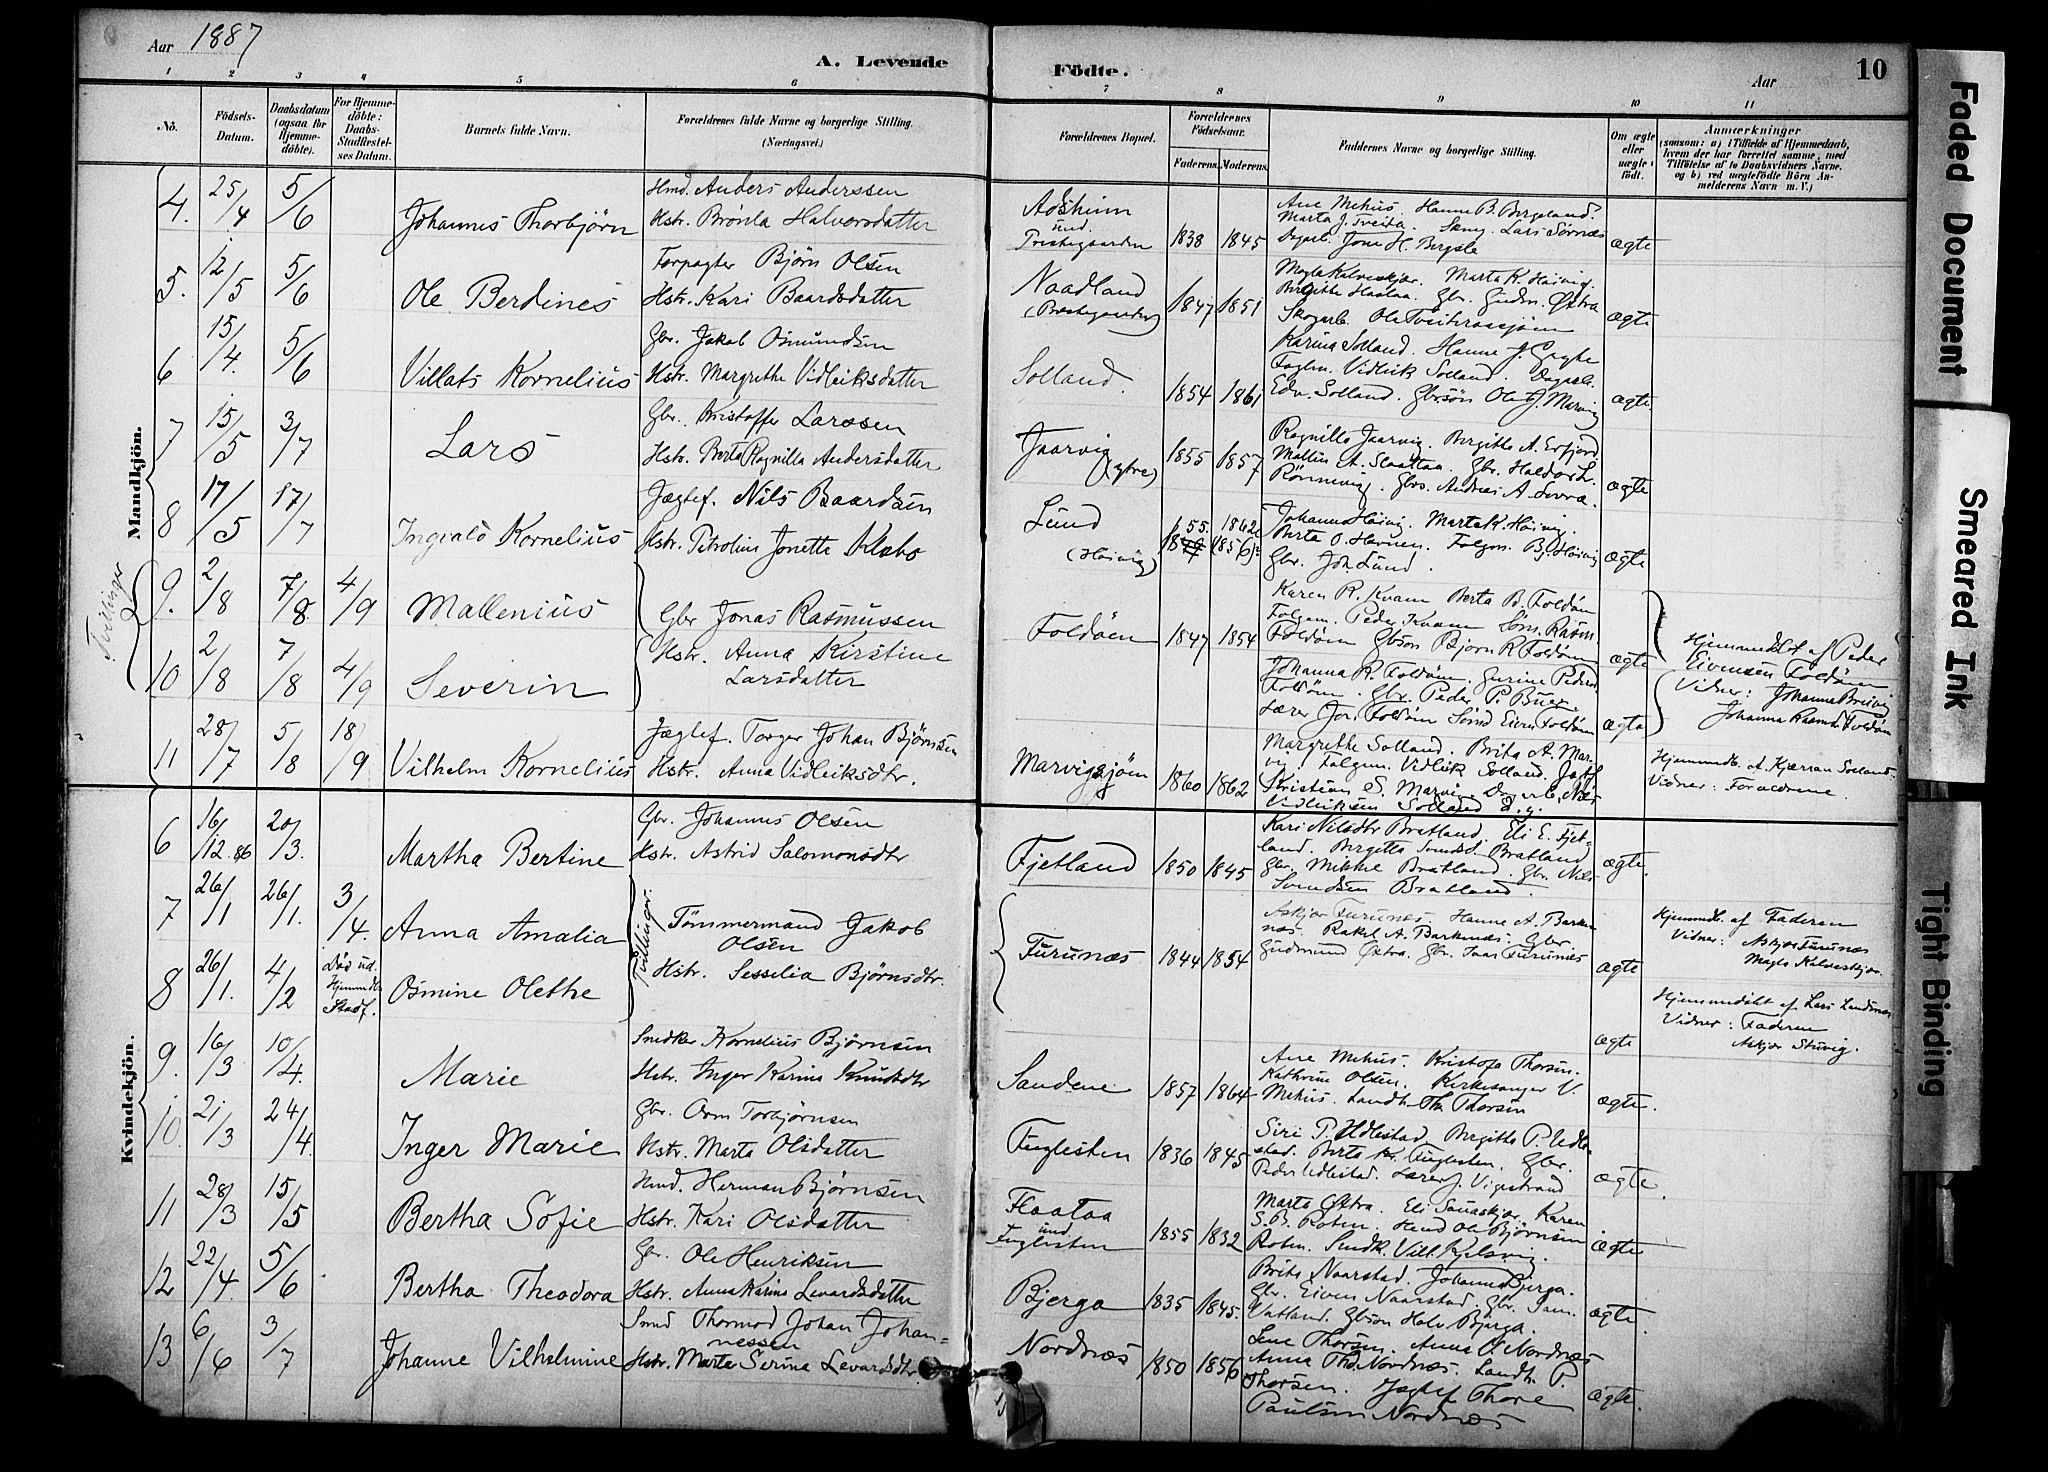 Aar 1887
A. Levende
Födte.
Aar
10
1 2 3 4 5 6 7 8 9 10 11
No.
Födsels-
Datum.
Daabsdatum
(ogsaa for
Hjemme-
döbte).
For Hjemme-
döbte:
Daabs-
Stadfestel-
ses Datum.
Barnets fulde Navn.
Forældrenes fulde Navne og borgerlige Stilling.
(Næringsvei.)
Forældrenes Bopæl.
Forældrenes
Födselsaar.
Faderens. Moderens.
Faddernes Navne og borgerlige Stilling.
Om ægte
eller
uægte
födt.
Anmærkninger
(saasom: a) i Tilfælde af Hjemmedaab,
hvem der har forrettet samme, med
Tilföielse af to Daabsvidners Navne.
og b) ved uægtefödte Börn An-
melderens Navn m. V.)
Mandkjön.
4. 25/4 5/6 Johannes Thorbjörn
Hmd. Anders Anderssen
Hstr. Brönla Halvorsdatter
Aosheim
und.
Prestegaarden
1838 1845
Ane Mehus. Hanne B. Bergeland.
Marta J. Tveita. Lars Sörnæs
Dagarb. Jone H. Bergsle
ægte
5. 12/5 5/6 Ole Berdines
Forpagter Bjørn Olsen
Hstr. Kari Baardsdatter
Naadland
(Prestegaarden)
1847 1851
Magla Kalveskjær. Marta K. Høivig.
Birgitte Haataa. Gbr. Gudm. Østra
Skogarb. Ole
ægte
6 15/4. 5/6 Villats Kornelius
Gbr. Jakob Osmundsen
Hstr. Margrethe Vidleiksdatter
Solland.
1854 1861
Karina Solland. Hanne J.
Folgm. Vidleik Solland. Dagarb.
Edv. Solland. Gbrsön Ole J. Marvig
ægte.
7 15/5 3/7 Lars
Gbr. Kristoffer Larssen
Hstr. Berta Ragnilla Andersdatter
Jaarvig
(ytre)
1855 1857
Ragnilla Jaarvig. Birgitte A. Erfjord
Mallin A. Slaattaa. Gbr. Haldor L.
Rönnevig. Gbrs. Andreas A.
ægte
8 17/5 17/7 Ingvald Kornelius
Jægtef. Nils Baardsen
Hstr. Petroline Jonette Klebo
Lund
(Høivig)
1855 1862
(1856)
Johanne Høivig. Marta K. Høivig.
Berta O. Hevnen. Folgm. B. Høivig
Gbr. Joh. Lund.
ægte
Tvillinger
9. 2/8 7/8. 4/9 Mallenius
Gbr Jonas Rasmussen
Hstr. Anna Kirstine
Larsdatter
Foldöen
1847 1854
Karen R. Kvam Berta B. Foldöen
Folgem. Peder Kvam Söns. Rasm.
Foldöen Gbsön Bjørn R. Foldöen
ægte
Hjemmedöbt af Peder
Eivensen Foldöen
Vidner: Johanna Breivig
Johanna Rasmd. Foldöen
10 2/8 7/8 4/9 Severin
Johanna R. Foldöen. Gurine Pedersd
Foldöen. Gbr. Peder P. Buer.
Lærer Jon. Foldöen Sönd Eiven Foldöen
ægte
11 28/7 5/8 18/9 Vilhelm Kornelius
Jægtef. Torger Johan Björnsen
Hstr. Anna Vidleiksdtr.
Marvigsjöen
1860 1862
Margrethe Solland. Brita A. Mar-
vig. Folgem. Vidleik Solland. Jægtf
Kristian S. Marvig. Dagarb. Nils
Vidleiksen Solland d.y.
Hjemmedb. A. Kjærran Solland.
Vidner: Forældrene.
Kvindekjön.
6 16/12.86 20/3. Martha Bertine
Gbr. Johannes Olsen
Hstr. Astrid Salomonsdtr
Fjetland
1850 1845
Kari Nilsdtr Bratland. Eli E. Fjet-
land. Birgitta Svendsd. Bratland
Gbr. Mikkel Bratland. Gbr. Nils
Svendsen Bratland.
ægte.
7 26/1 26/1. 3/4. Anna Amalia
Tvillinger.
Tömmermand Jakob
Olsen
Hstr. Sesselia Björnsdtr.
Furunæs
1844 1854
Askjær Furunæs. Hanne A. Barke
næs. Rakel A. Barkenæs. Gbr.
Gudmund Østra. Gbr. Ivar Furunæs
ægte
Hjemmdb. af Faderen
Vidner: Askjær Furunæs
Magla Kalveskjær.
8 26/1. 4/2 Död ud.
Hjemmdb
Stadf.
Osmine Olethe
ægte
Hjemmedöbt af Lars Landnæs
Vidner: Faderen
Askjær Stuvig.
9. 16/3 10/4. Marie
Snedker Kornelius Björnsen
Hstr. Inger Karine Knudsdtr
Sandene
1857 1864
Ane Mehus. Kristofa Thorsen.
Kathrine Olsen. Kirkesanger V.
Mehus. Landh. Th. Thorsen
ægte.
10. 21/3 24/4. Inger Marie
Gbr. Orm Torbjörnsen
Hstr. Marta Olsdatter
Fuglesten
1836 1845
Siri P. Udlestad. Birgitte P. Udle-
stad. Berta K. Fuglesten. Gbr.
Peder Udlestad. Lærer J. Vigestrand
ægte.
11 28/3 15/5 Bertha Sofie
Hmd. Herman Björnsen
Hstr. Kari Olsdatter
Flaataa
und
Fuglesten
1855 1832
Marta Østra. Eli Sauaskjær. Karen
S. B. Roten. Hmd Ole Björnsen
Roten. Snedk. Vill. Kjelsvig.
ægte
12 22/4. 5/6 Bertha Theodora
Gbr. Ole Henriksen
Hstr. Anna Karine Levardsdatter
Bjerga
1835 1845.
Brita Naarstad. Johanna Bjerga.
Gbr. Eiven Naarstad. Gbr. Sam.
Vatland. Gbsön Halv. Bjerga.
ægte.
13 6/6 3/7 Johanne Vilhelmine
Smed Thormod Johan Johan-
nessen
Hstr. Marta Serina Levardsdtr.
Nordnæs
1850 1856
Lene Thorsen. Anna O. Nordnæs
Anna Th. Nordnæs. Landh. P.
Thorsen. Jægtef. Thore
Paulsen Nordnæs
ægte.
Faded Document
Smeared Ink
Tight Binding